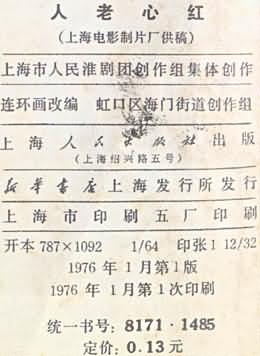 人老心红
(上海电影制片厂供稿)
上海市人民淮剧团创作组集体创作
连环画改编 虹口区海门街道创作组
上海人民出版社出版
(上海绍兴路五号)
新华书店上海发行所发行
上海市印刷五厂印刷
开本 787×1092 1/64 印张 1 12/32
1976 年 1 月第 1 版
1976 年 1 月第 1 次印刷
统一书号: 8171·1485
定价: 0.13 元